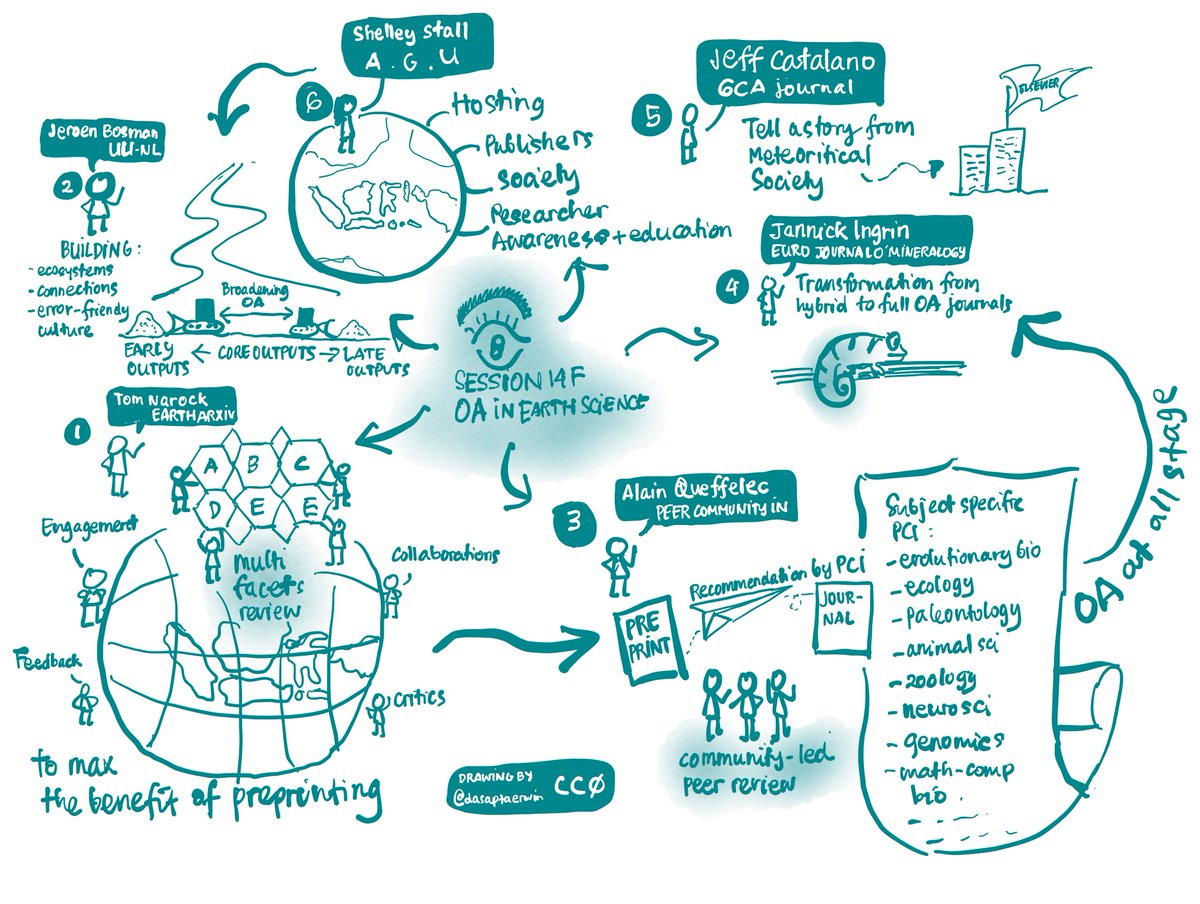 SESSION 14F
OA IN EARTH SCIENCE
1
Tom Narock
EARTHARXIV
A B C
D E E
multi
facets
review
Engagement
Collaborations
Feedback
Critics
to max
the benefit of preprinting
2
Jeroen Bosman
UU-NL
BUILDING:
- ecosystems
- connections
- error-friendly
culture
Broadening
OA
EARLY
OUTPUTS
← CORE OUTPUTS →
LATE
OUTPUTS
3
Alain Queffelec
PEER COMMUNITY IN
Recommendation by PCI
PRE
PRINT
JOUR-
NAL
community-led
peer review
Subject specific
PCI:
- evolutionary bio
- ecology
- paleontology
- animal sci
- zoology
- neurosci
- genomics
- math-comp
bio
OA at all stage
4
Jannick Ingrin
EURO JOURNAL O' MINERALOGY
Transformation from
hybrid to full OA journals
5
Jeff Catalano
GCA journal
Tell a story from
Meteoritical
Society
ELSEVIER
6
Shelley Stall
A.G.U
Hosting
Publishers
society
Researcher
Awareness + education
DRAWING BY
@dasaptaerwin
CC0